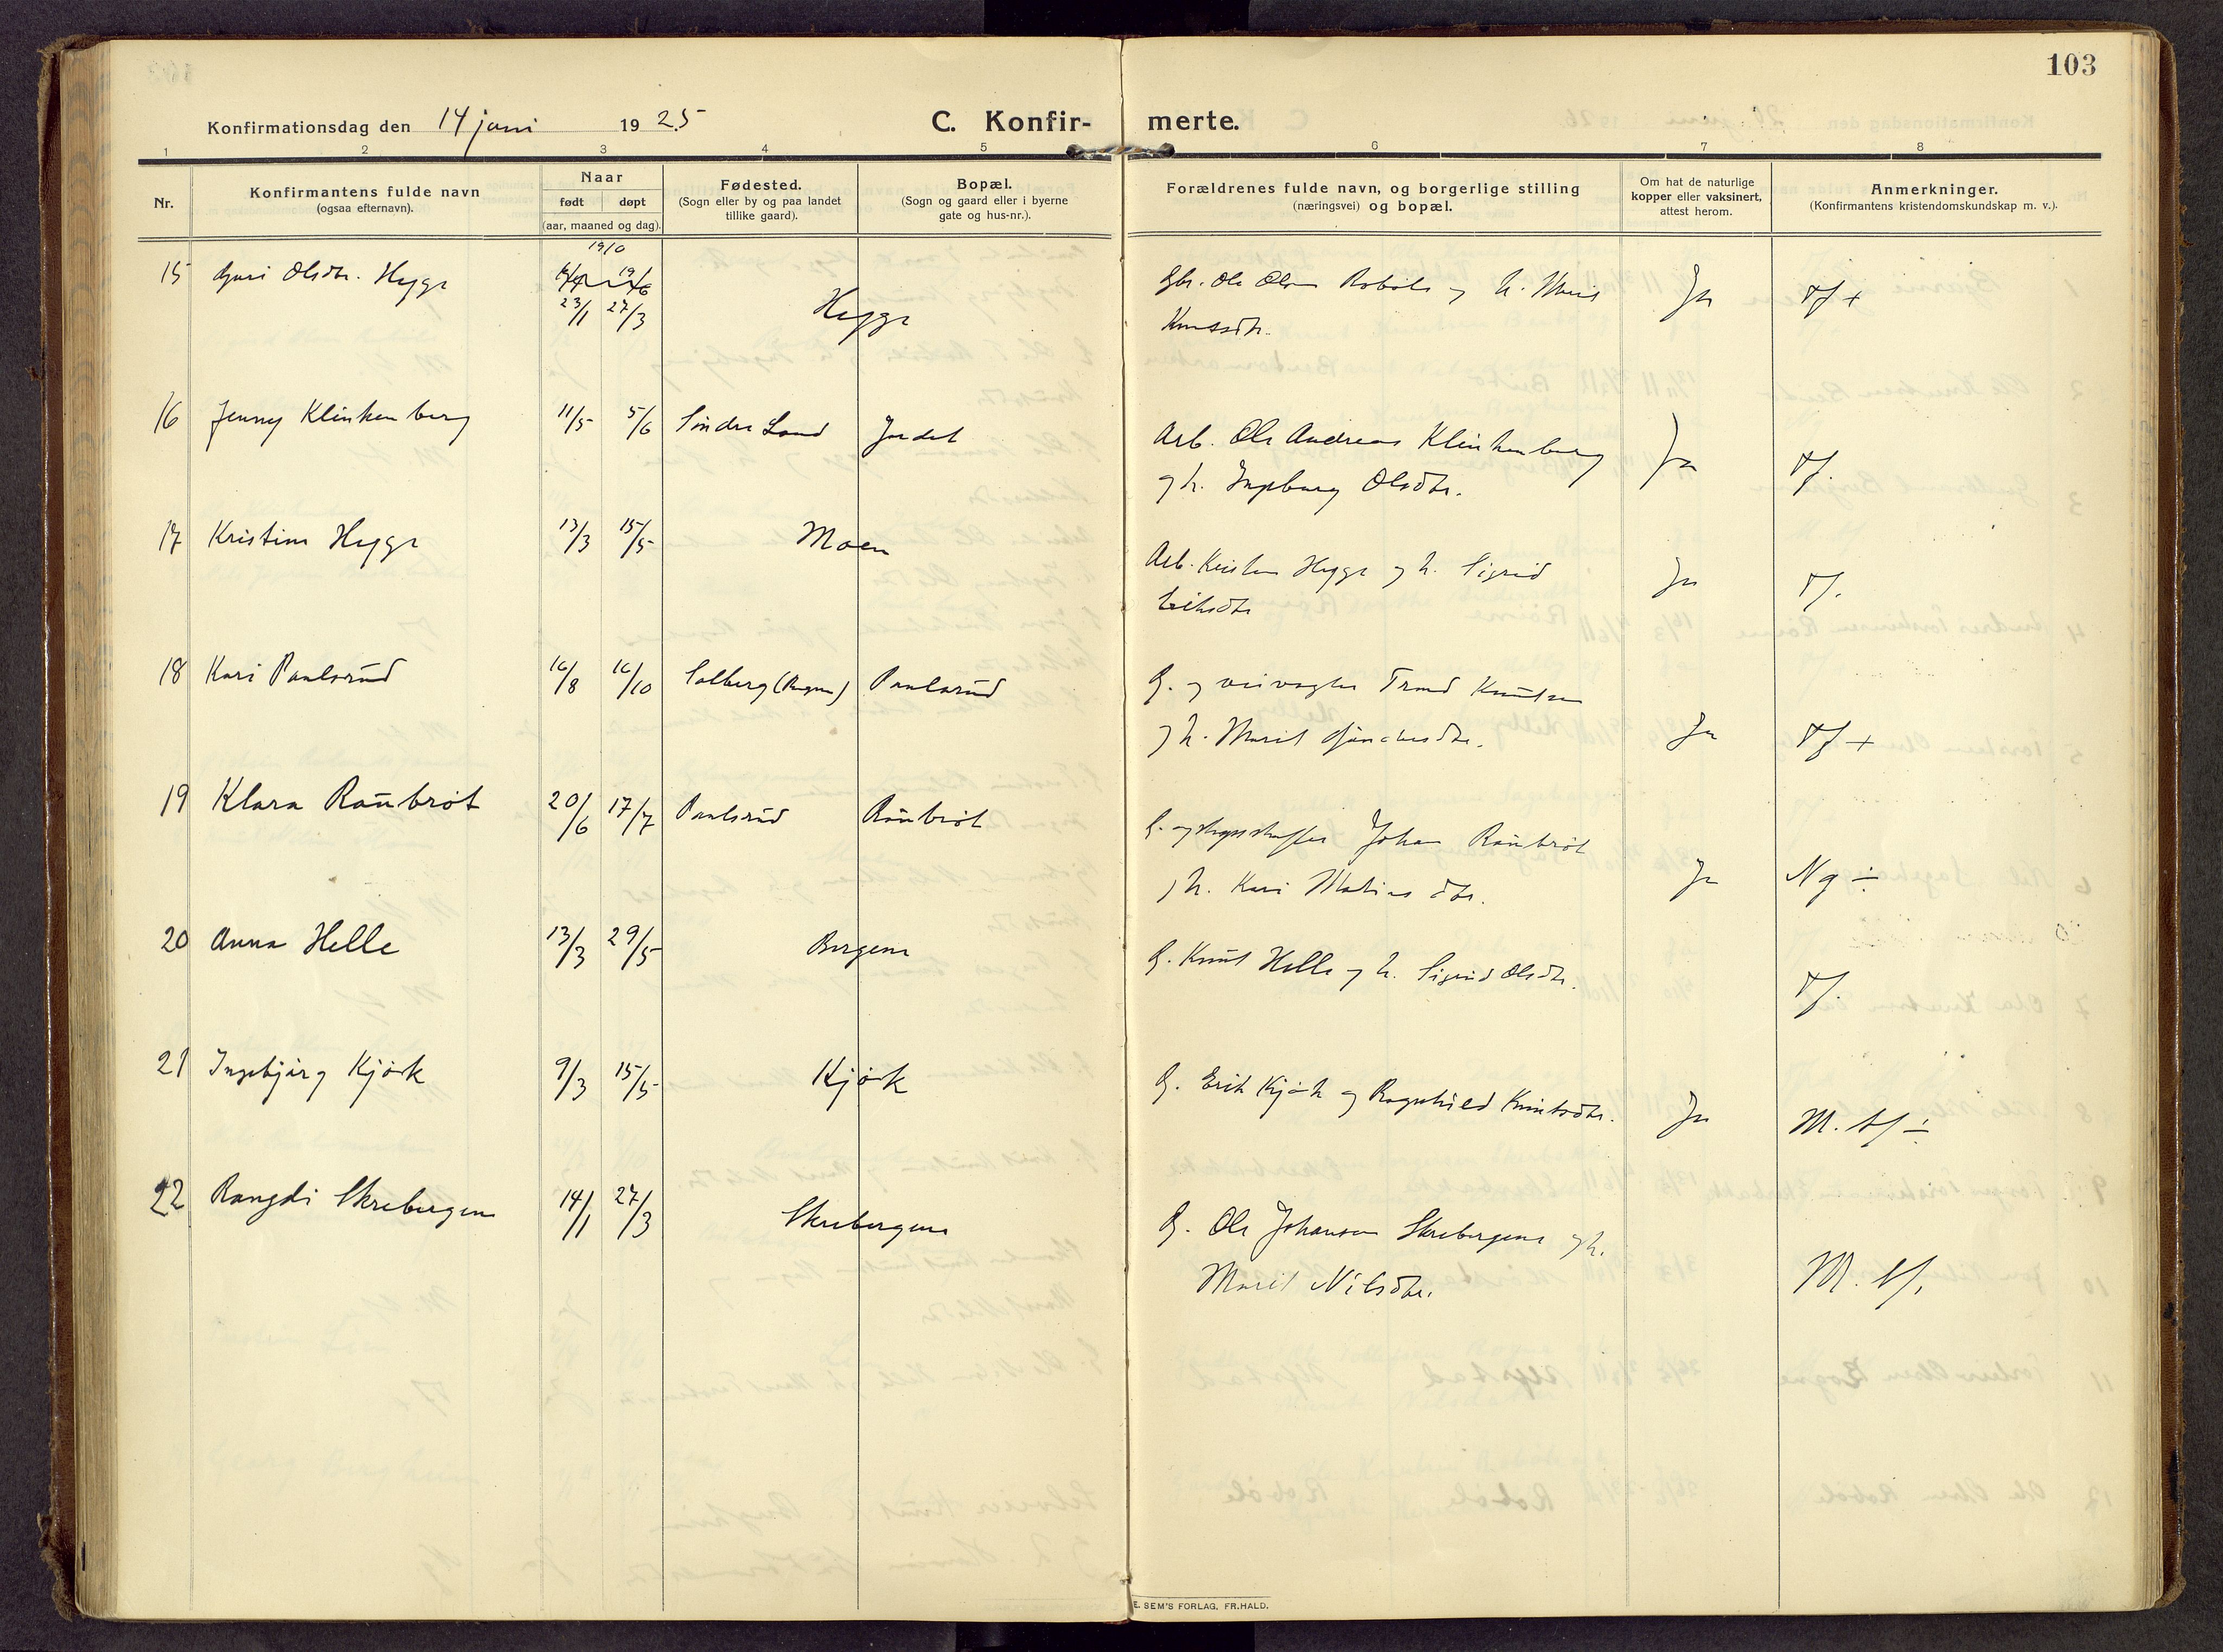 103
Konfirmationsdag den 14 juni 1925 C. Konfir- merte.
1 2 3 4 5 6 7 8
Nr. Konfirmantens fulde navn (ogsaa efternavn).
Naar født døpt (aar, maaned og dag).
Fødested. (Sogn eller by og paa landet tillike gaard).
Bopæl. (Sogn og gaard eller i byerne gate og hus-nr.).
Forældrenes fulde navn, og borgerlige stilling (næringsvei) og bopæl.
Om hat de naturlige kopper eller vaksinert, attest herom.
Anmerkninger. (Konfirmantens kristendomskundskap m. v.).
1910
15 Guri Olsdtr. Hegge 23/1 27/3 Hegge Gbr. Ole Olsen Robøle og h. Marit Ja Tf +
Knutsdtr.
16 Jenny Klinkenberg 11/5 5/6 Søndre Land Jordet Arb. Ole Andreas Klinkenberg Ja Tf.
og h. Ingeborg Olsdtr.
17 Kristine Hegge 13/3 15/5 Moen Arb. Kristen Hegge og h. Sigrid Ja Tf.
Eriksdtr
18 Kari Paulsrud 16/8 16/10 Solberg (Rogne) Paulsrud G. og veivogter Trond Knutsen
og h. Marit Ja Tf +
19 Klara Raubrøt 20/6 17/7 Paulsrud Raubrøt G. og Johan Raubrøt
og h. Kari Matias dtr. Ja Ng ÷
20 Anna Helle 13/3 29/5 Bergene G. Knut Helle og h. Sigrid Olsdtr. Tf.
21 Ingebjørg Kjørk 9/3 15/5 Kjørk G. Erik Kjørk og Ragnhild Knutsdtr. Ja M. tf ÷
22 Rangdi Skrebergene 14/1 27/3 Skrebergene G. Ole Johansen Skrebergene og h.
Marit Nilsdtr. M. tf.
E. SEM'S FORLAG, FR.HALD.